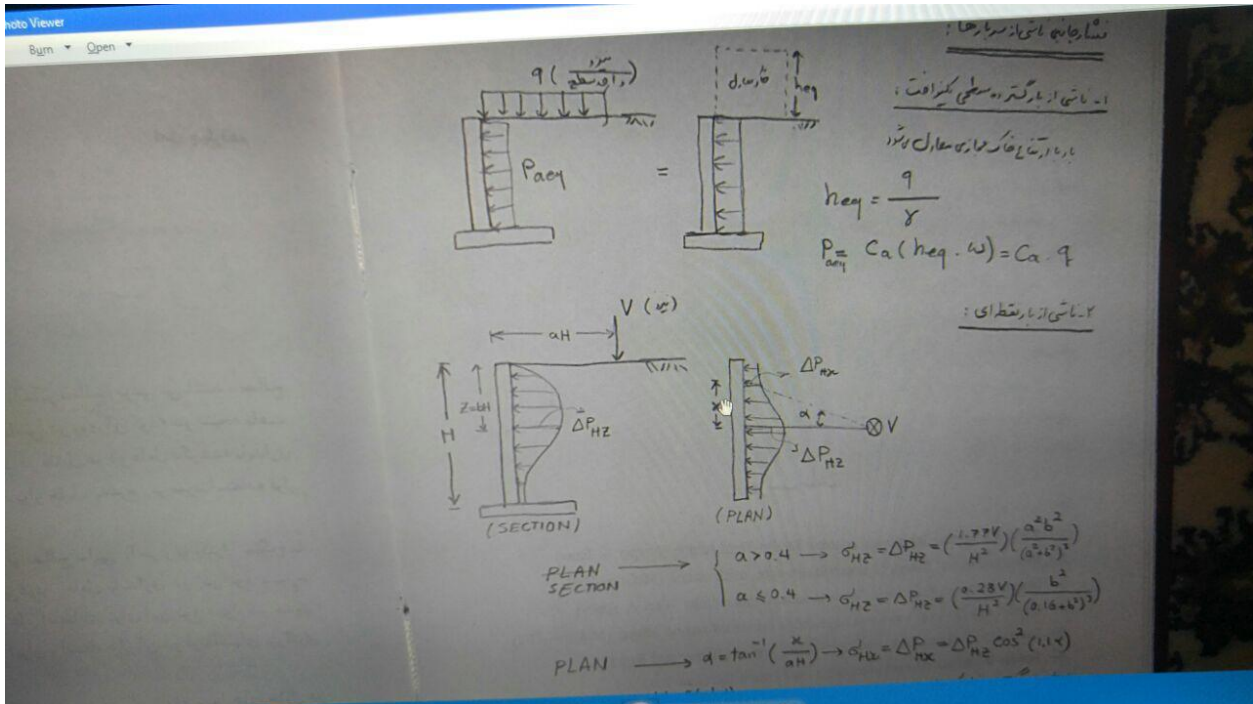 Photo Viewer
Burn Open
فشار جانبی ناشی از سربارها :
۱- ناشی از بار گسترده سطحی یکنواخت :
q ( بار / واحد سطح )
heq
Paeq
=
بار با ارتفاع خاک مجازی معادل می‌شود
heq = q / γ
Paeq = Ca ( heq . ω ) = Ca . q
۲- ناشی از بار نقطه‌ای :
V
aH
H
Z=bH
ΔPHZ
(SECTION)
ΔPHX
x
α
V
ΔPHZ
(PLAN)
PLAN
SECTION
a>0.4 → σ'HZ = ΔPHZ = (1.77V / H²)(a²b² / (a²+b²)³)
a≤0.4 → σ'HZ = ΔPHZ = (0.28V / H²)(b² / (0.16+b²)³)
PLAN → α = tan⁻¹(x / aH) → σ'HX = ΔPHX = ΔPHZ cos²(1.1α)